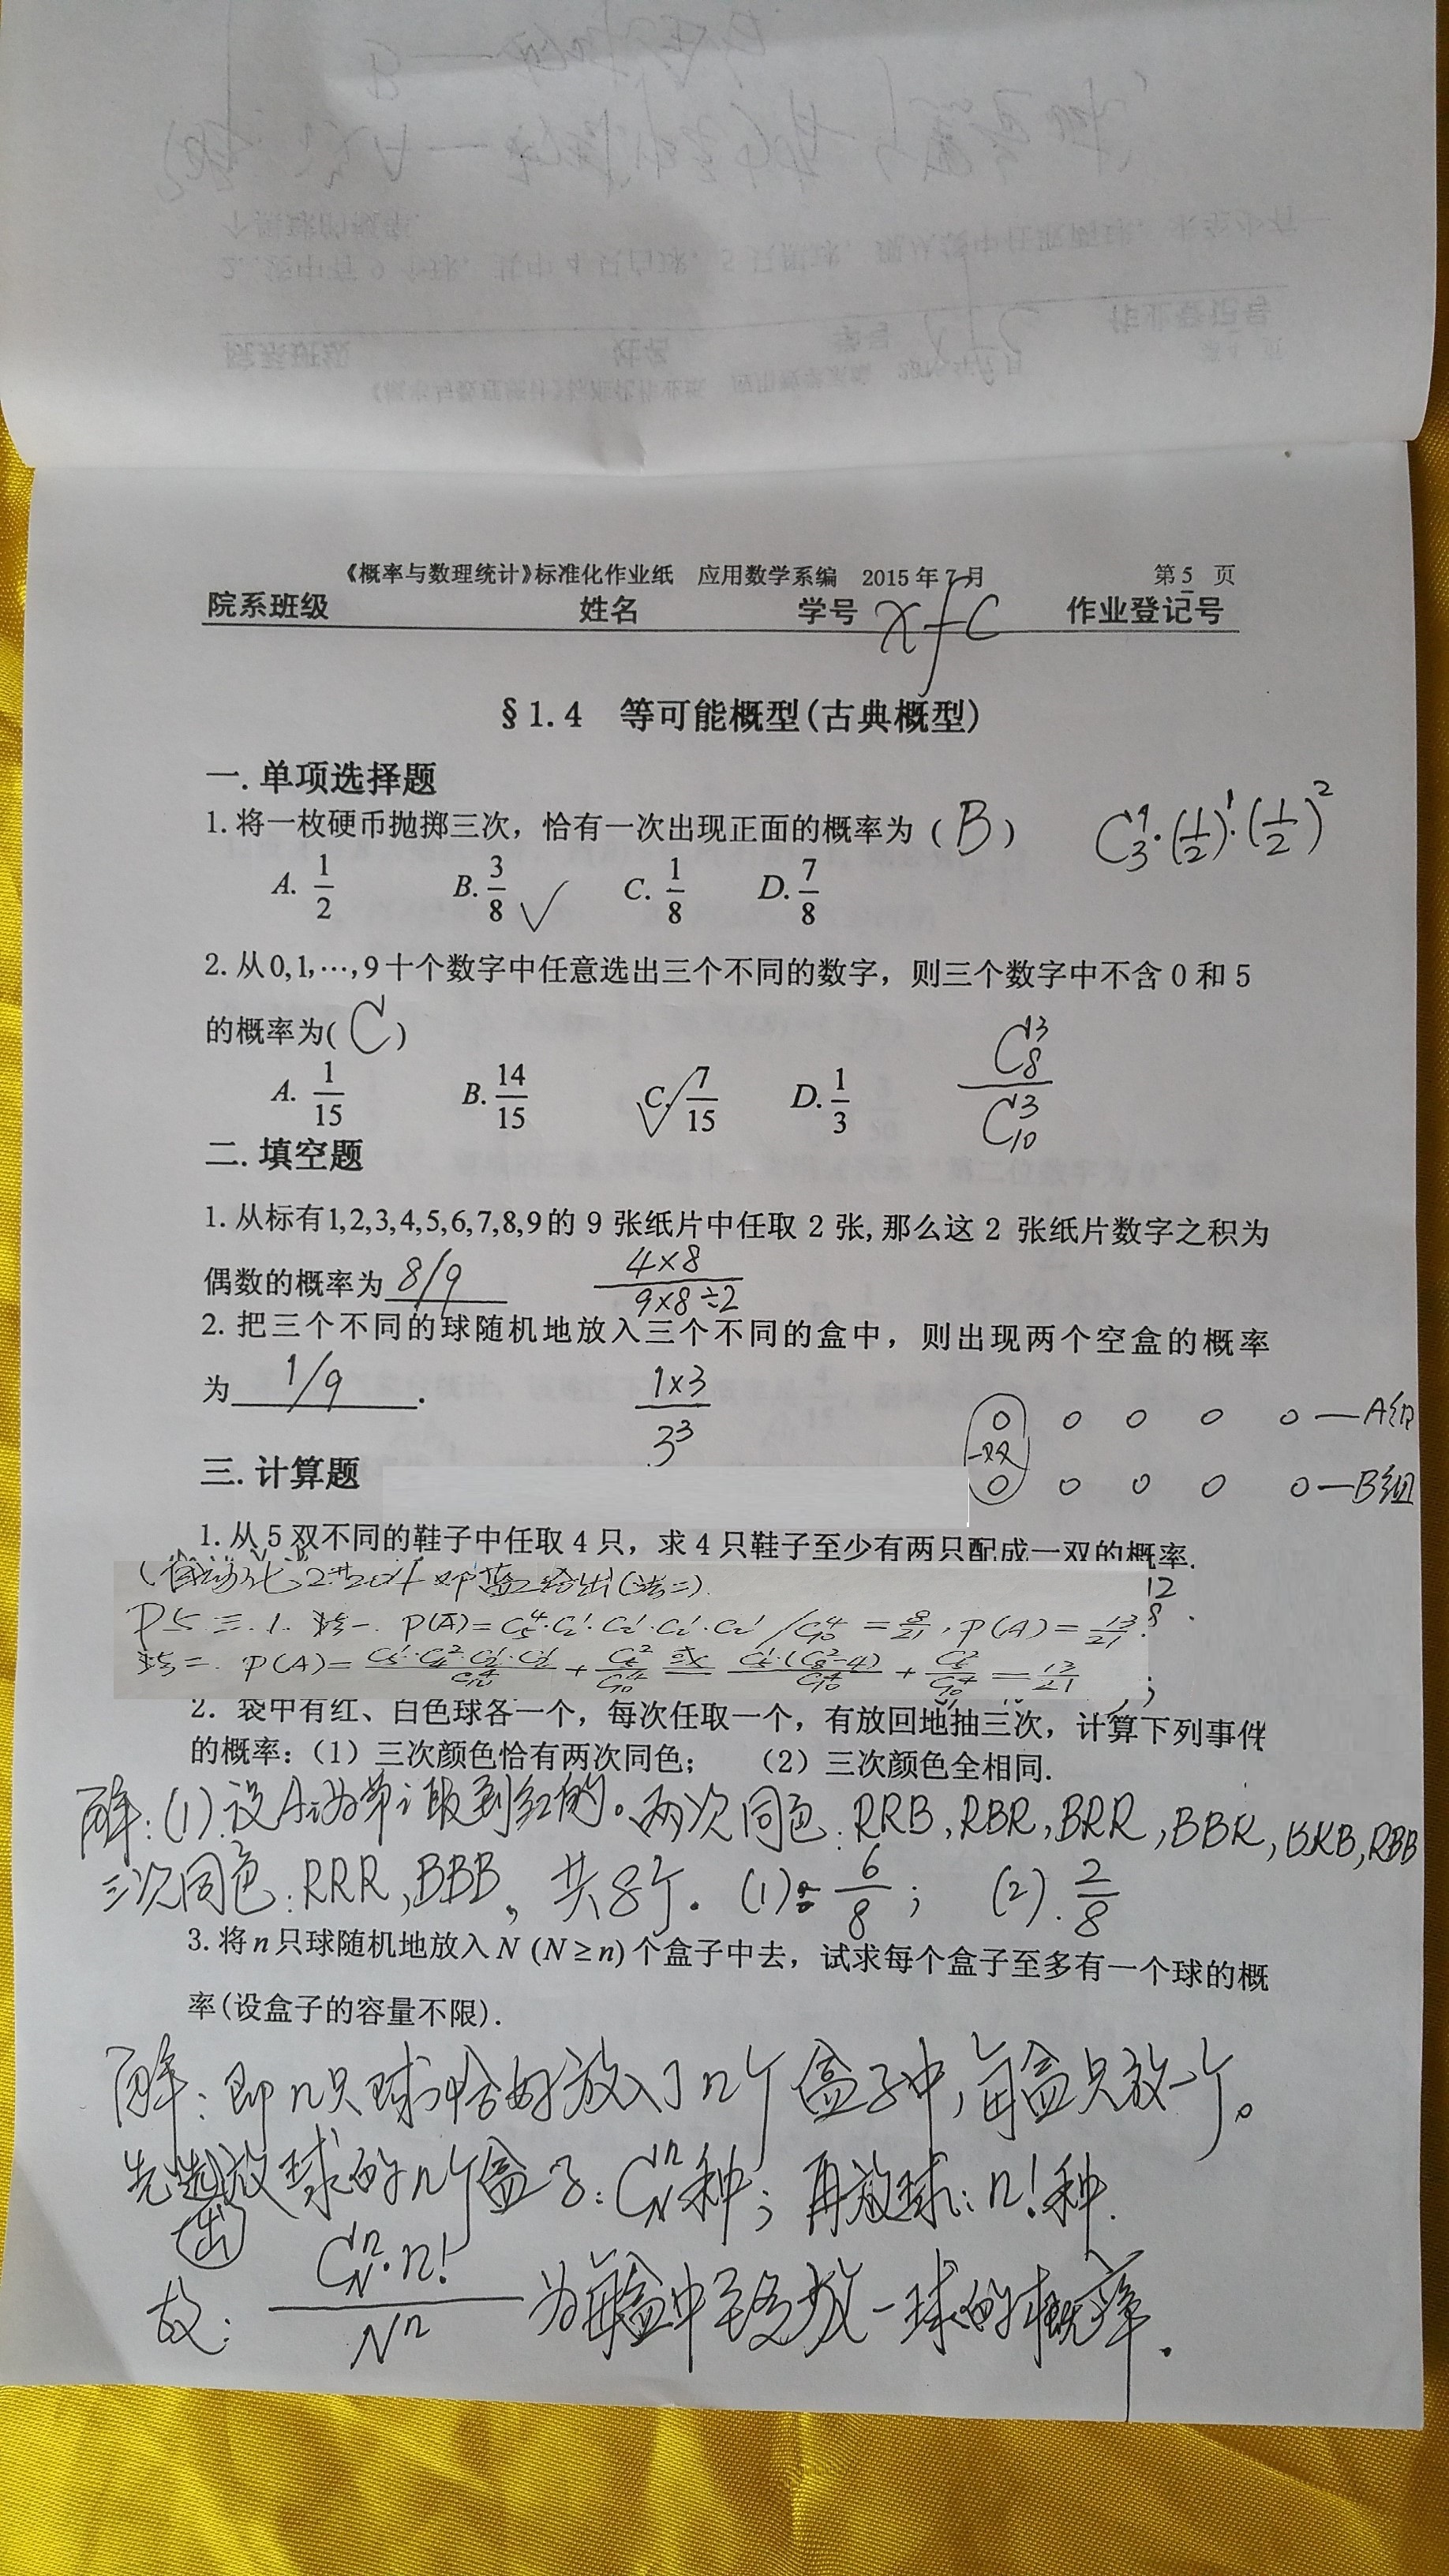 《概率与数理统计》标准化作业纸 应用数学系编 2015年7月 第5页
院系班级 姓名 学号 xfc 作业登记号
§1.4 等可能概型(古典概型)
一.单项选择题
1.将一枚硬币抛掷三次，恰有一次出现正面的概率为（B） C₃¹·(1/2)¹·(1/2)²
A. 1/2 B. 3/8 √ C. 1/8 D. 7/8
2.从0,1,⋯,9十个数字中任意选出三个不同的数字，则三个数字中不含0和5
的概率为(C) C₈³/C₁₀³
A. 1/15 B. 14/15 C. 7/15 √ D. 1/3
二.填空题
1.从标有1,2,3,4,5,6,7,8,9的9张纸片中任取2张,那么这2张纸片数字之积为
偶数的概率为 8/9 4×8/9×8÷2
2.把三个不同的球随机地放入三个不同的盒中，则出现两个空盒的概率
为 1/9 . 1×3/3³
o o o o o—A组
一双
o o o o o—B组
三.计算题
1.从5双不同的鞋子中任取4只，求4只鞋子至少有两只配成一双的概率.
给出(法二).
P5 三.1. 法一. P(A̅)=C₅⁴·C₂¹·C₂¹·C₂¹·C₂¹/C₁₀⁴=8/21, P(A)=13/21.
法二. P(A)=C₅¹·C₄²·C₂¹·C₂¹/C₁₀⁴+C₅²/C₁₀⁴ 或 C₅¹·(C₈²-4)/C₁₀⁴+C₅²/C₁₀⁴=13/21
2.袋中有红、白色球各一个，每次任取一个，有放回地抽三次，计算下列事件
的概率:（1）三次颜色恰有两次同色; （2）三次颜色全相同.
解:(1).设Ai为第i取到红的。两次同色:RRB,RBR,BRR,BBR,BRB,RBB
三次同色:RRR,BBB。共8个. (1): 6/8; (2). 2/8
3.将n只球随机地放入N (N≥n)个盒子中去，试求每个盒子至多有一个球的概
率(设盒子的容量不限).
解:即n只球恰好放入了n个盒子中,每盒只放一个。
先选出放球的n个盒子:C_N^n种;再放球:n!种.
故: C_N^n·n!/N^n 为每盒中至多放一球的概率.